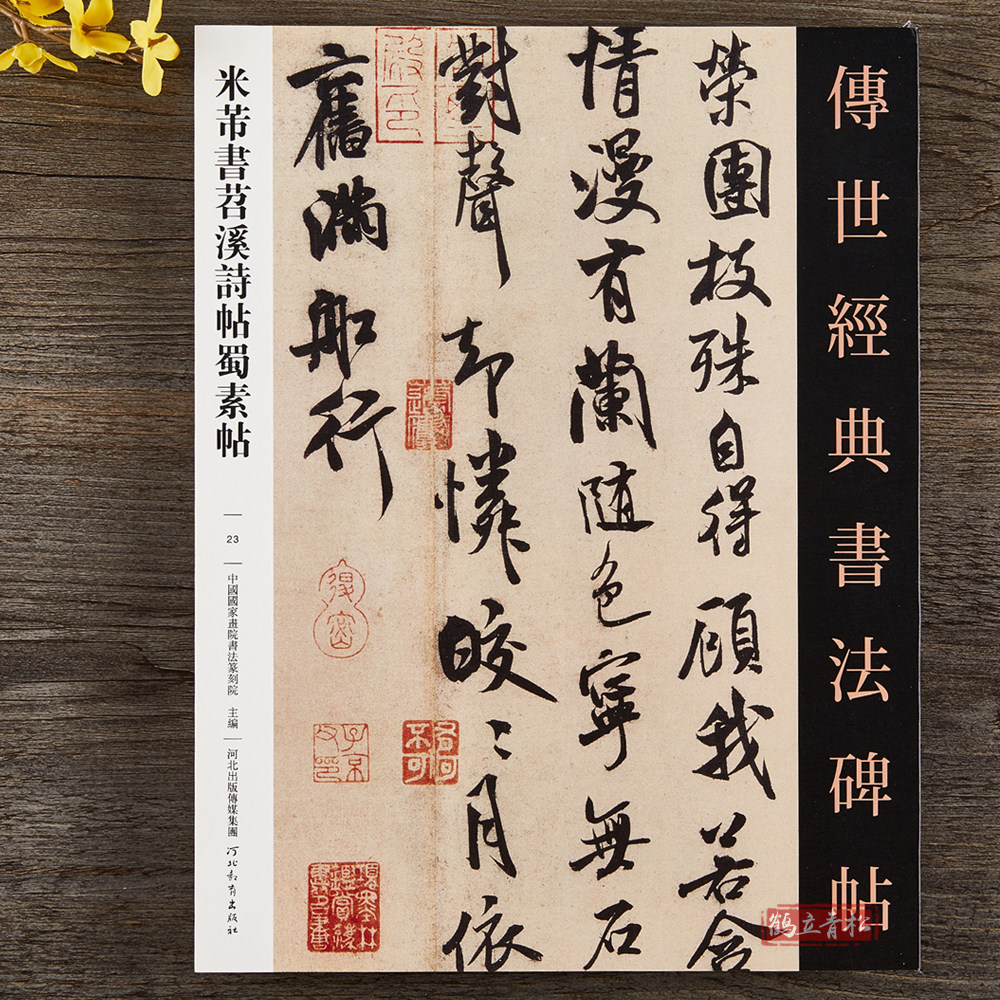 傳世經典書法碑帖
榮團枝殊自得顧我若含
情漫有蘭随色寧無石
對聲却憐皎〻月依
舊滿船行
米芾書苕溪詩帖蜀素帖
23
中國國家畫院書法篆刻院 主編
河北出版傳媒集團
河北教育出版社
鹤立青松